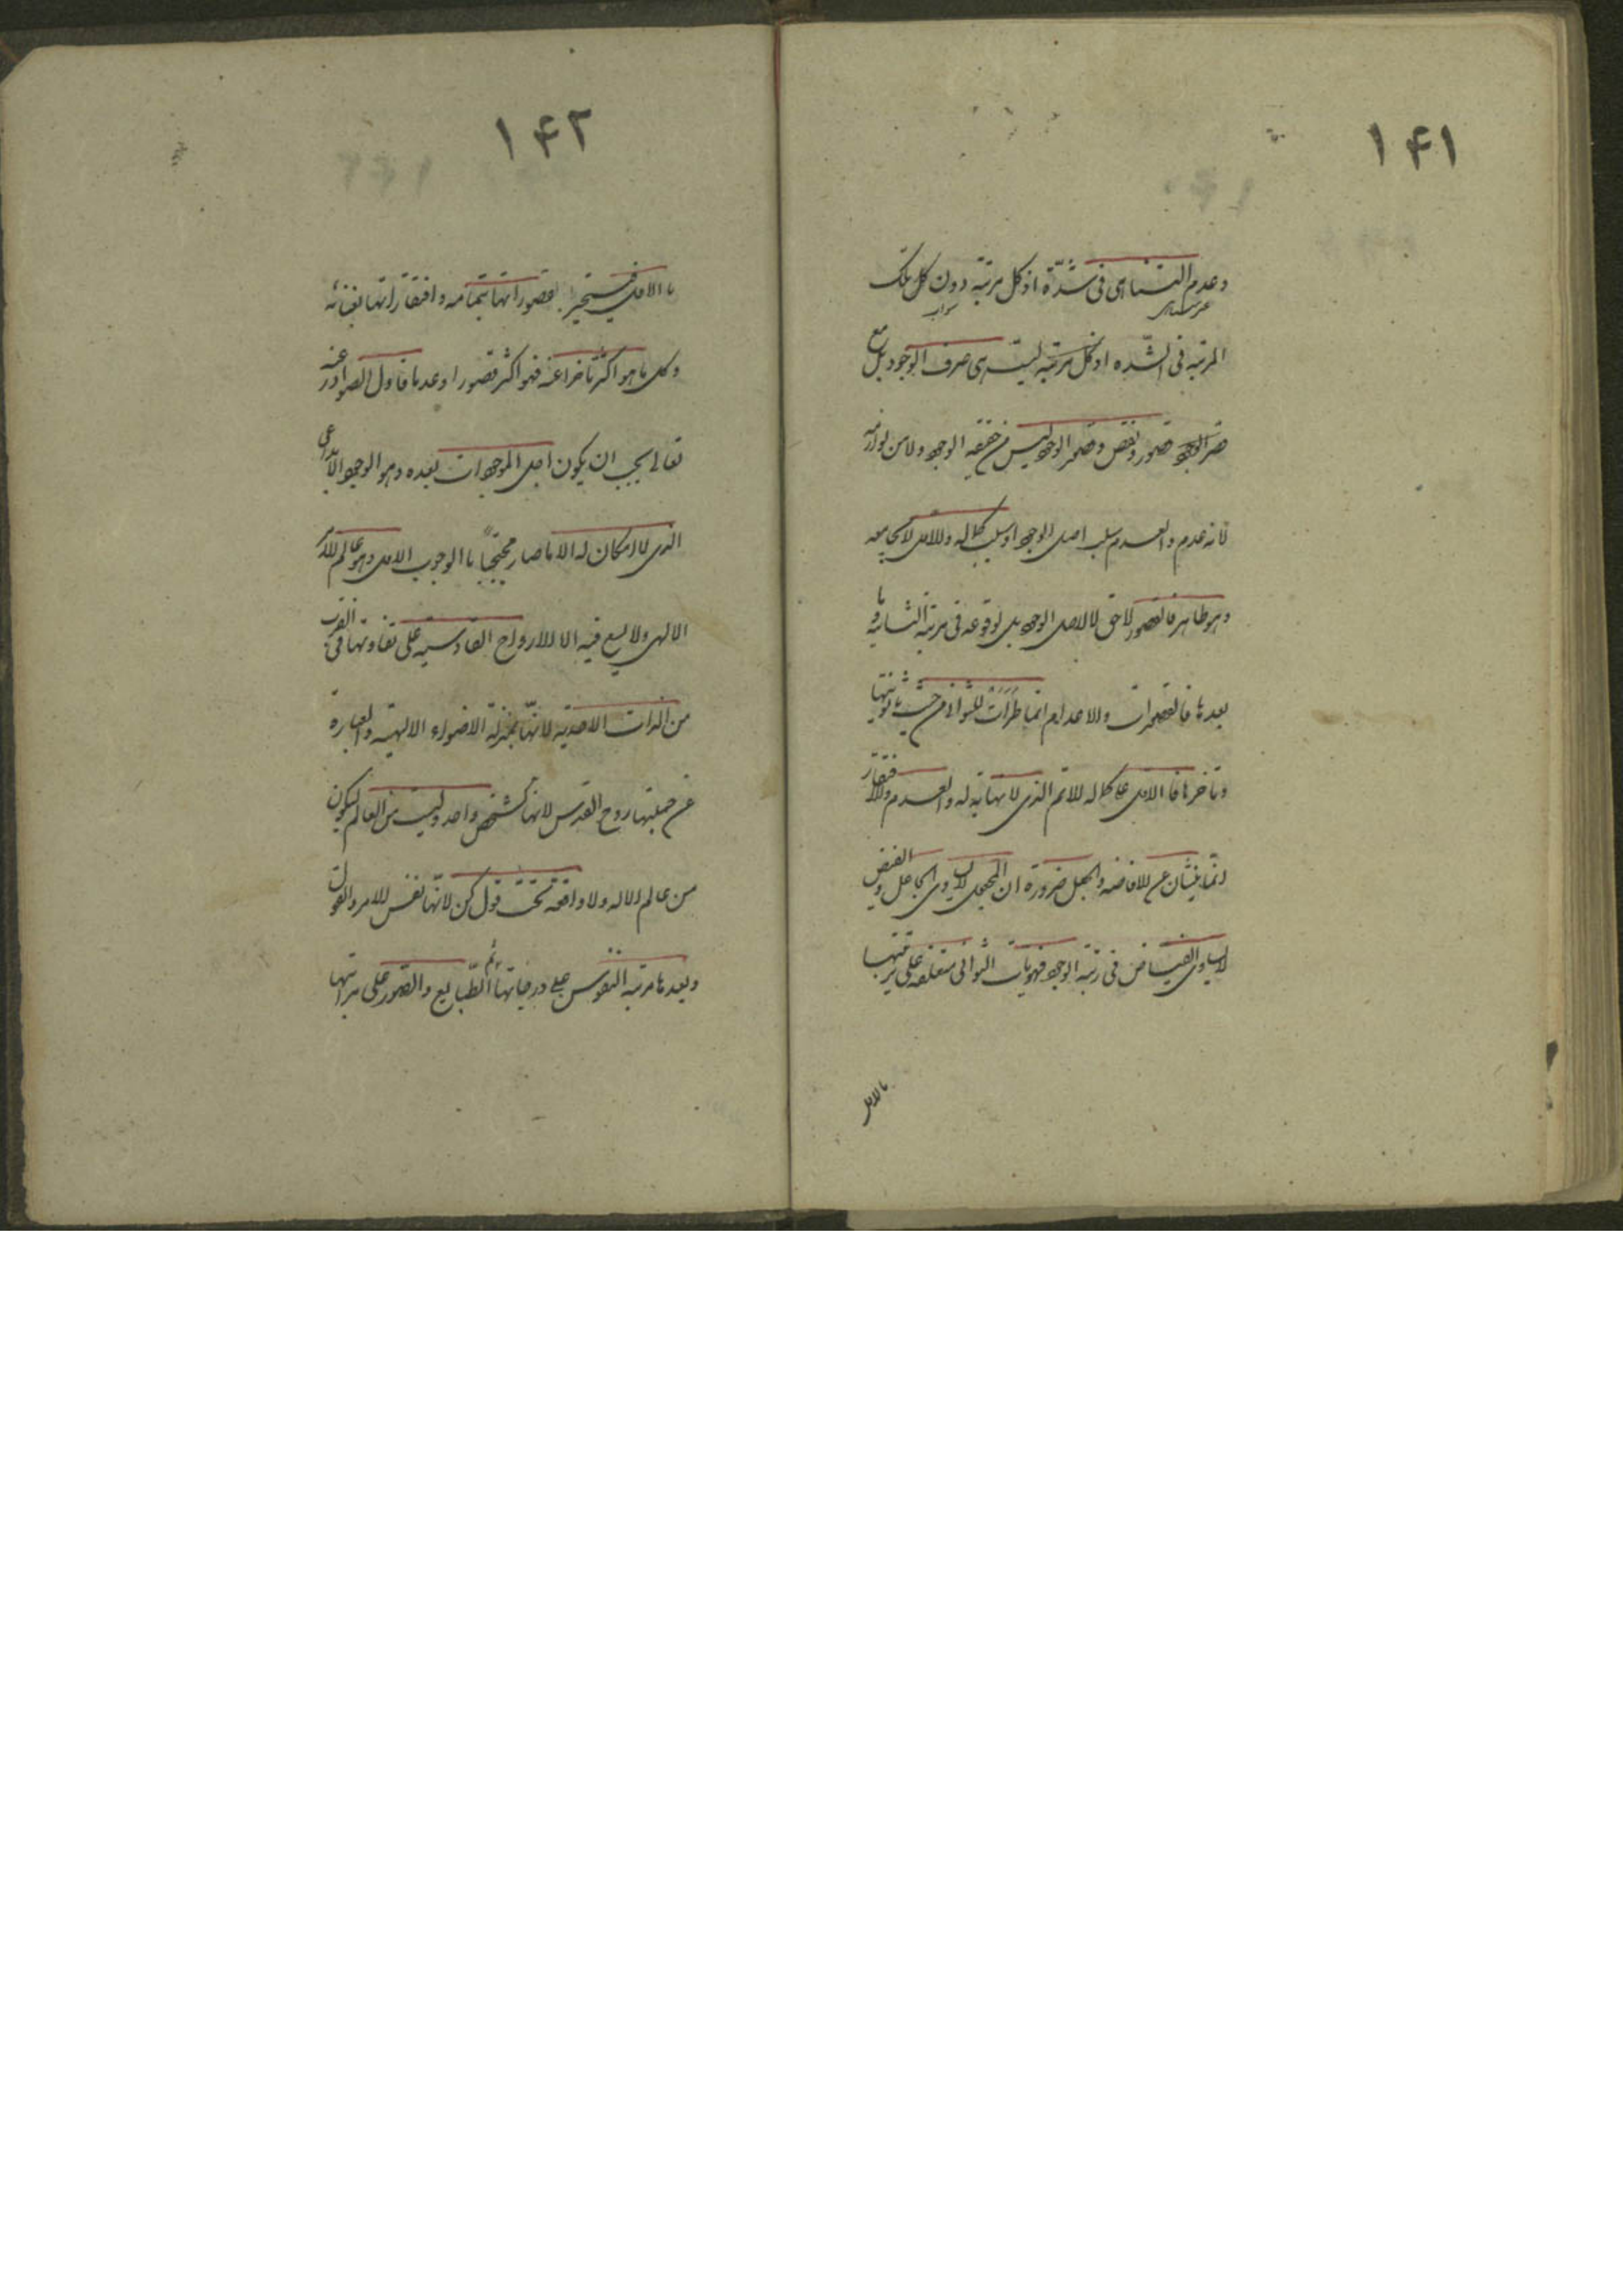 ١۴١
وعدم التناهى فى شدّة اذ كل مرتبة دون كل تلك
غير متناهى
المرتبه فى الشدّه اذ كل مرتبة ليست هى صرف الوجود بل مع
قصور ونقص وقصور الوجود ليس من حقيقة الوجود ولا من لوازمه
فانه عدم والعدم سلب اصل الوجود او سلب كماله والاول لا يجامعه
وهو ظاهر فالقصور لاحق لا لاصل الوجود بل لوقوعه فى مرتبة الثانية وما
بعدها فالقصورات والاعدام انما طرأت للثوانى من حيث ثانويتها
وتأخرها فالاول على كماله الاتم الذى لا نهاية له والعدم والافتقار
انما ينشآن عن الافاضه والجعل ضرورة ان المجعول لا يساوى الجاعل والفيض
لا يساوى الفياض فى رتبة الوجود فهويات الثوانى متعلقة على ترتيبها
بالاول
١۴٢
باالاول فينجبر قصوراتها بتمامه وافتقاراتها بغنائه
وكل ما هو اكثر تأخرا عنه فهو اكثر قصورا وعدما فاول الصوادر عنه
تعالى يجب ان يكون اجل الموجودات بعده وهو الوجود الابداعى
الذى لا امكان له الا ما صار محتجباً باالوجوب الاول وهو عالم الامر
الالهى ولا يسع فيه الا الارواح القادسية على تفاوتها فى القرب
من الذات الاحدية لانها بمنزلة الاضواء الالهية والعبارة
عن جملتها روح القدس لانها كشخص واحد وليست من العالم ليكون
من عالم الاله ولا واقعة تحت قول كن لانّها نفس الامر والقول
وبعدها مرتبة النفوس على درجاتها ثم الطّبايع والصّور على مراتبها